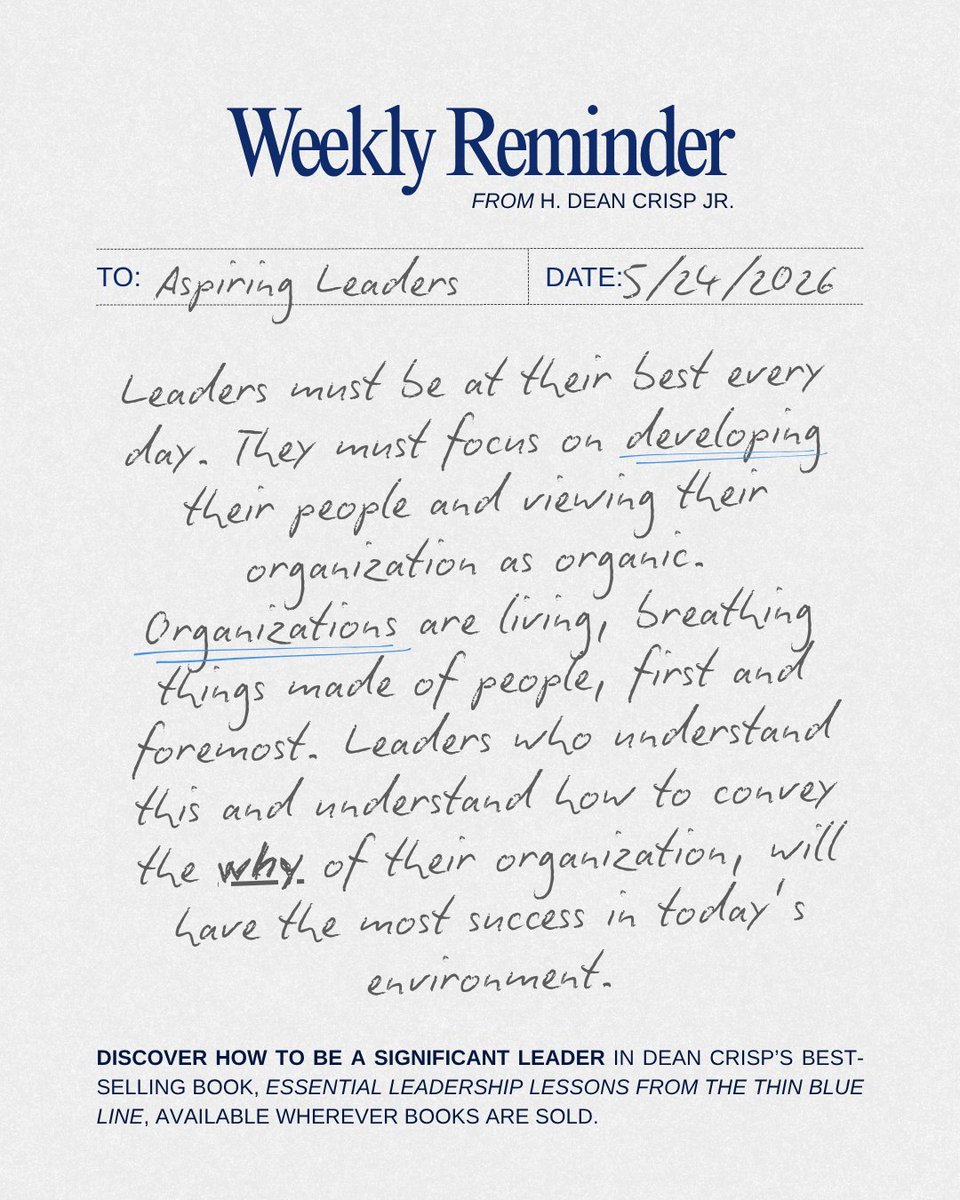 Weekly Reminder
FROM H. DEAN CRISP JR.
TO: Aspiring Leaders DATE: 5/24/2026
Leaders must be at their best every
day. They must focus on developing
their people and viewing their
organization as organic.
Organizations are living, breathing
things made of people, first and
foremost. Leaders who understand
this and understand how to convey
the why of their organization, will
have the most success in today's
environment.
DISCOVER HOW TO BE A SIGNIFICANT LEADER IN DEAN CRISP'S BEST-
SELLING BOOK, ESSENTIAL LEADERSHIP LESSONS FROM THE THIN BLUE
LINE, AVAILABLE WHEREVER BOOKS ARE SOLD.